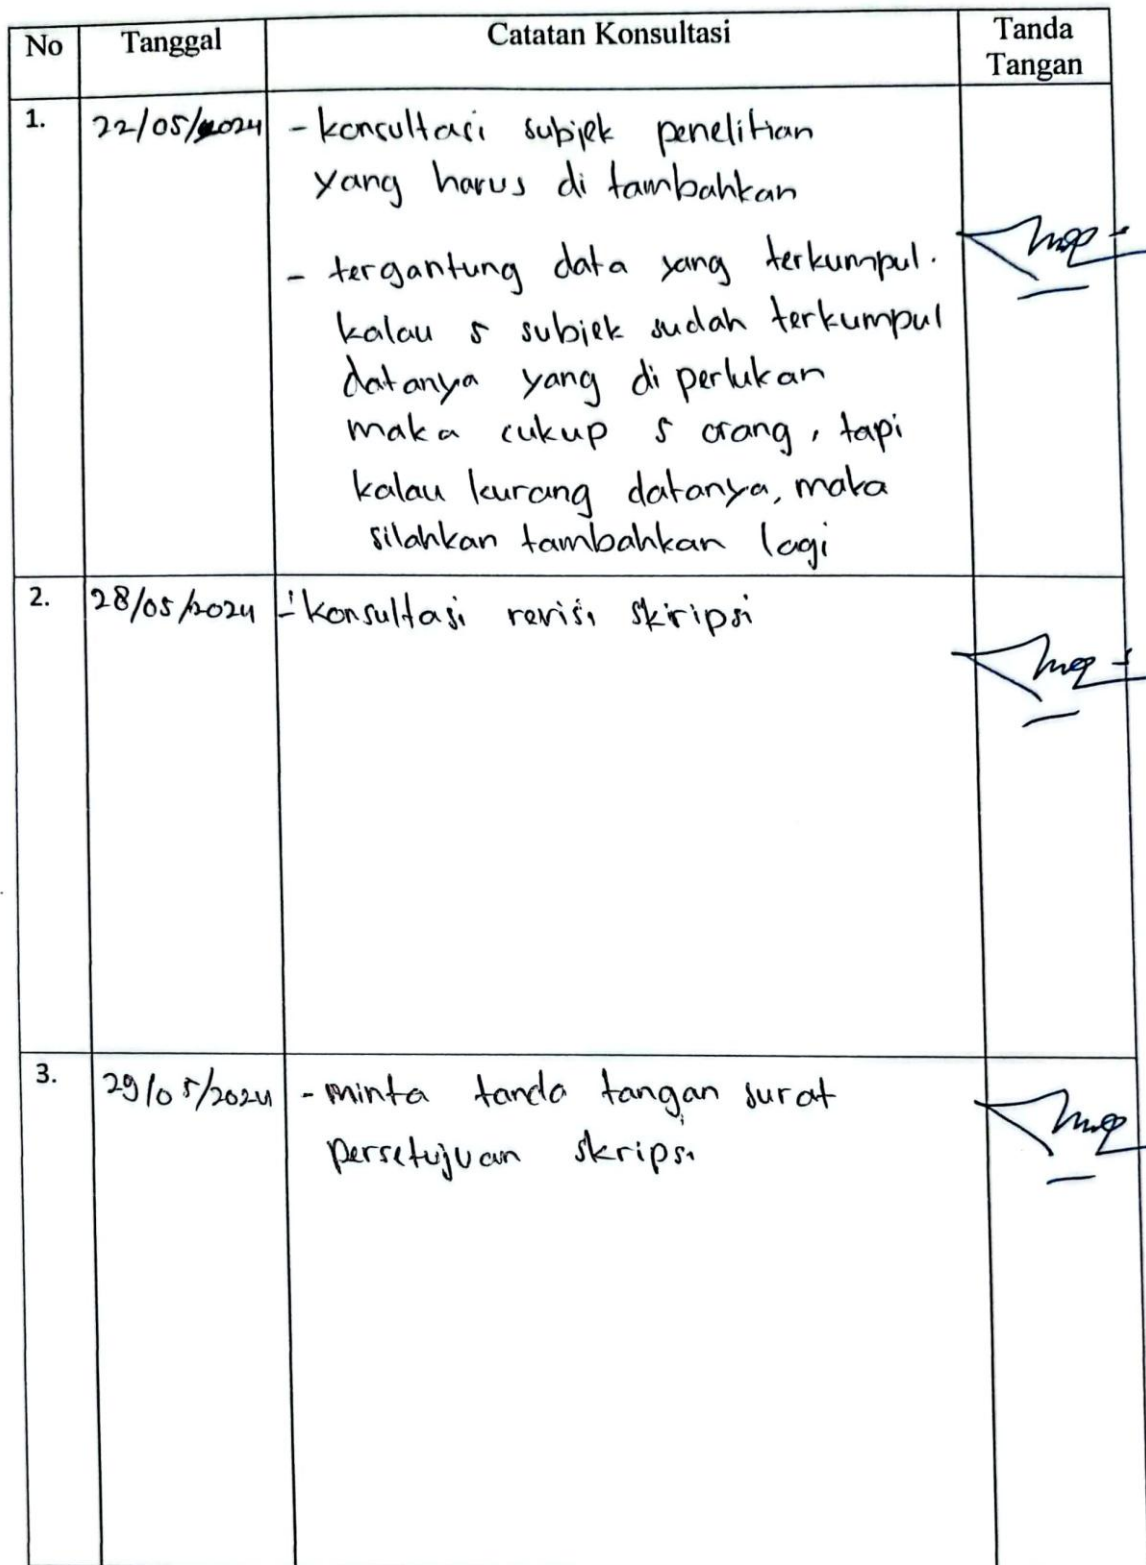 No Tanggal Catatan Konsultasi Tanda
Tangan
1. 22/05/2024 - konsultasi subjek penelitian
yang harus di tambahkan
- tergantung data yang terkumpul.
kalau 5 subjek sudah terkumpul
datanya yang di perlukan
maka cukup 5 orang, tapi
kalau kurang datanya, maka
silahkan tambahkan lagi
2. 28/05/2024 - konsultasi revisi skripsi
3. 29/05/2024 - minta tanda tangan surat
persetujuan skripsi